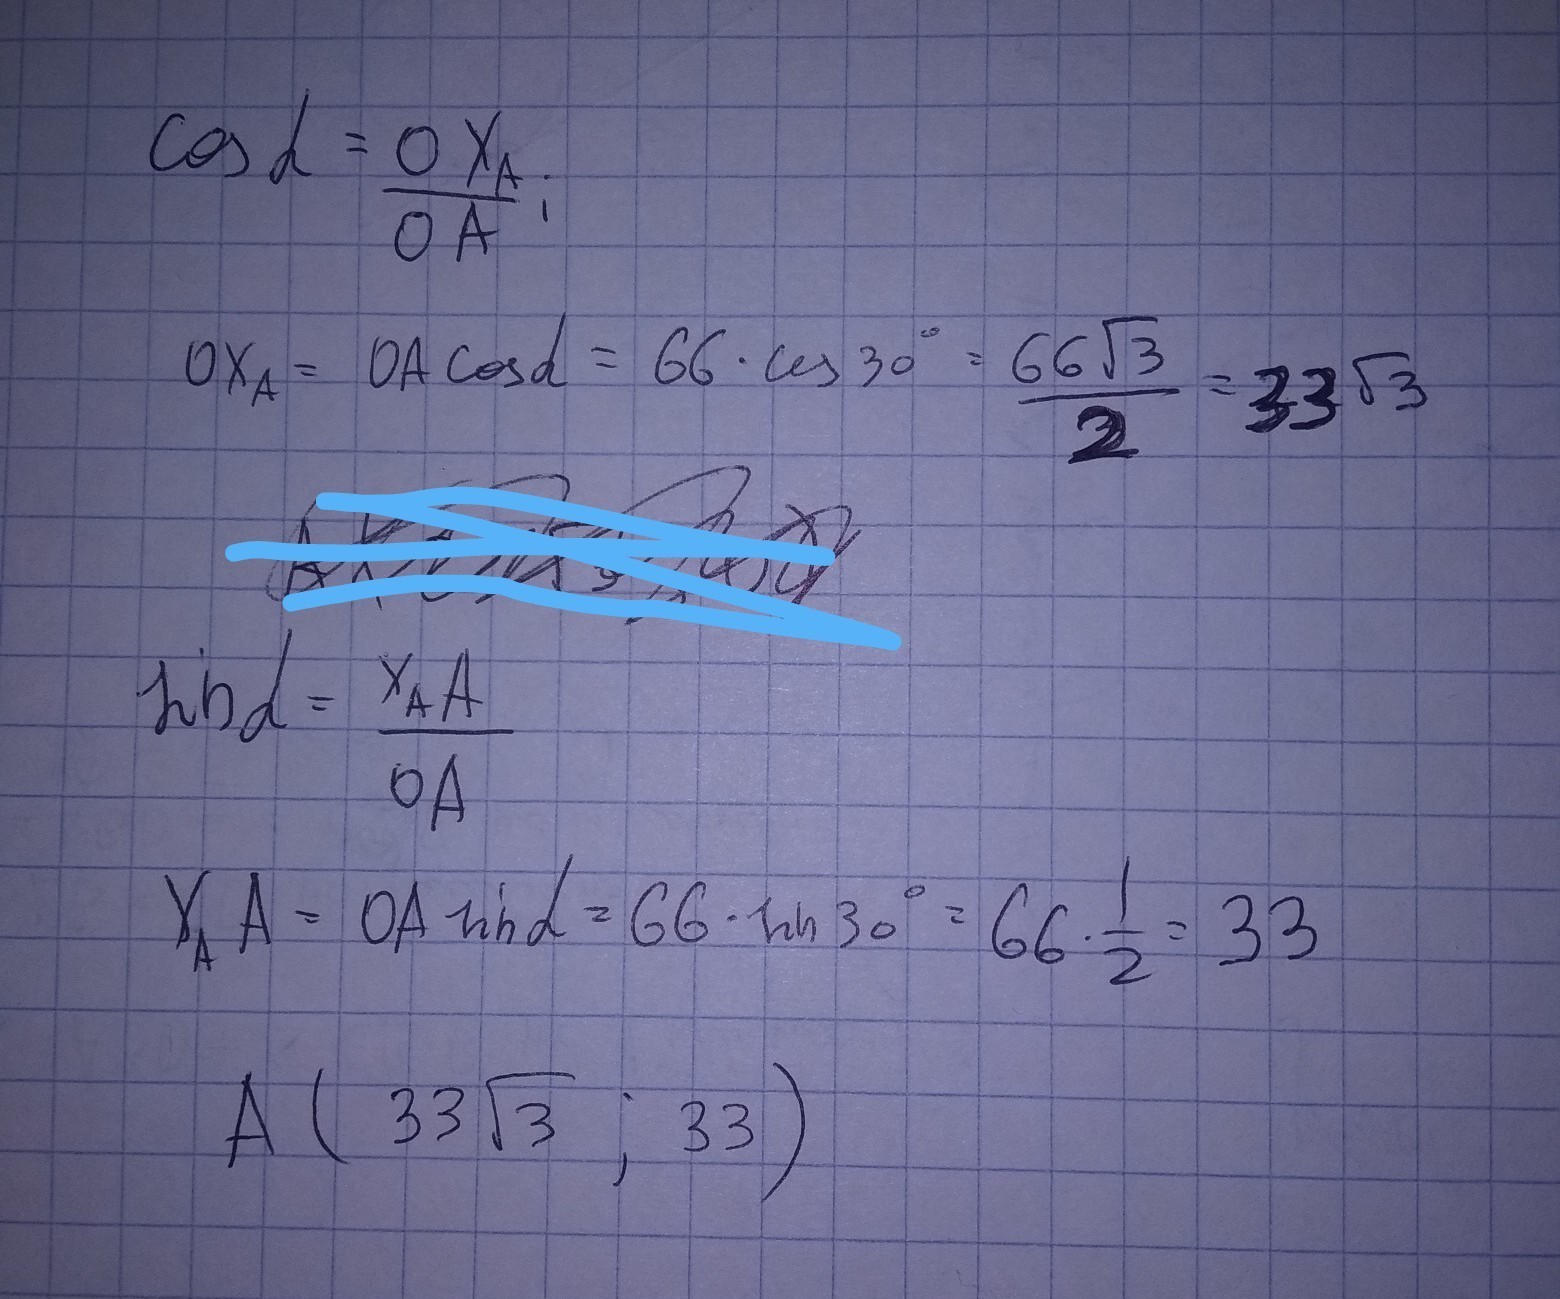 cos α = OX_A / OA ;
OX_A = OA cos α = 66 · cos 30° = 66√3 / 2 = 33√3
sin α = X_A A / OA
X_A A = OA sin α = 66 · sin 30° = 66 · 1/2 = 33
A ( 33√3 ; 33 )